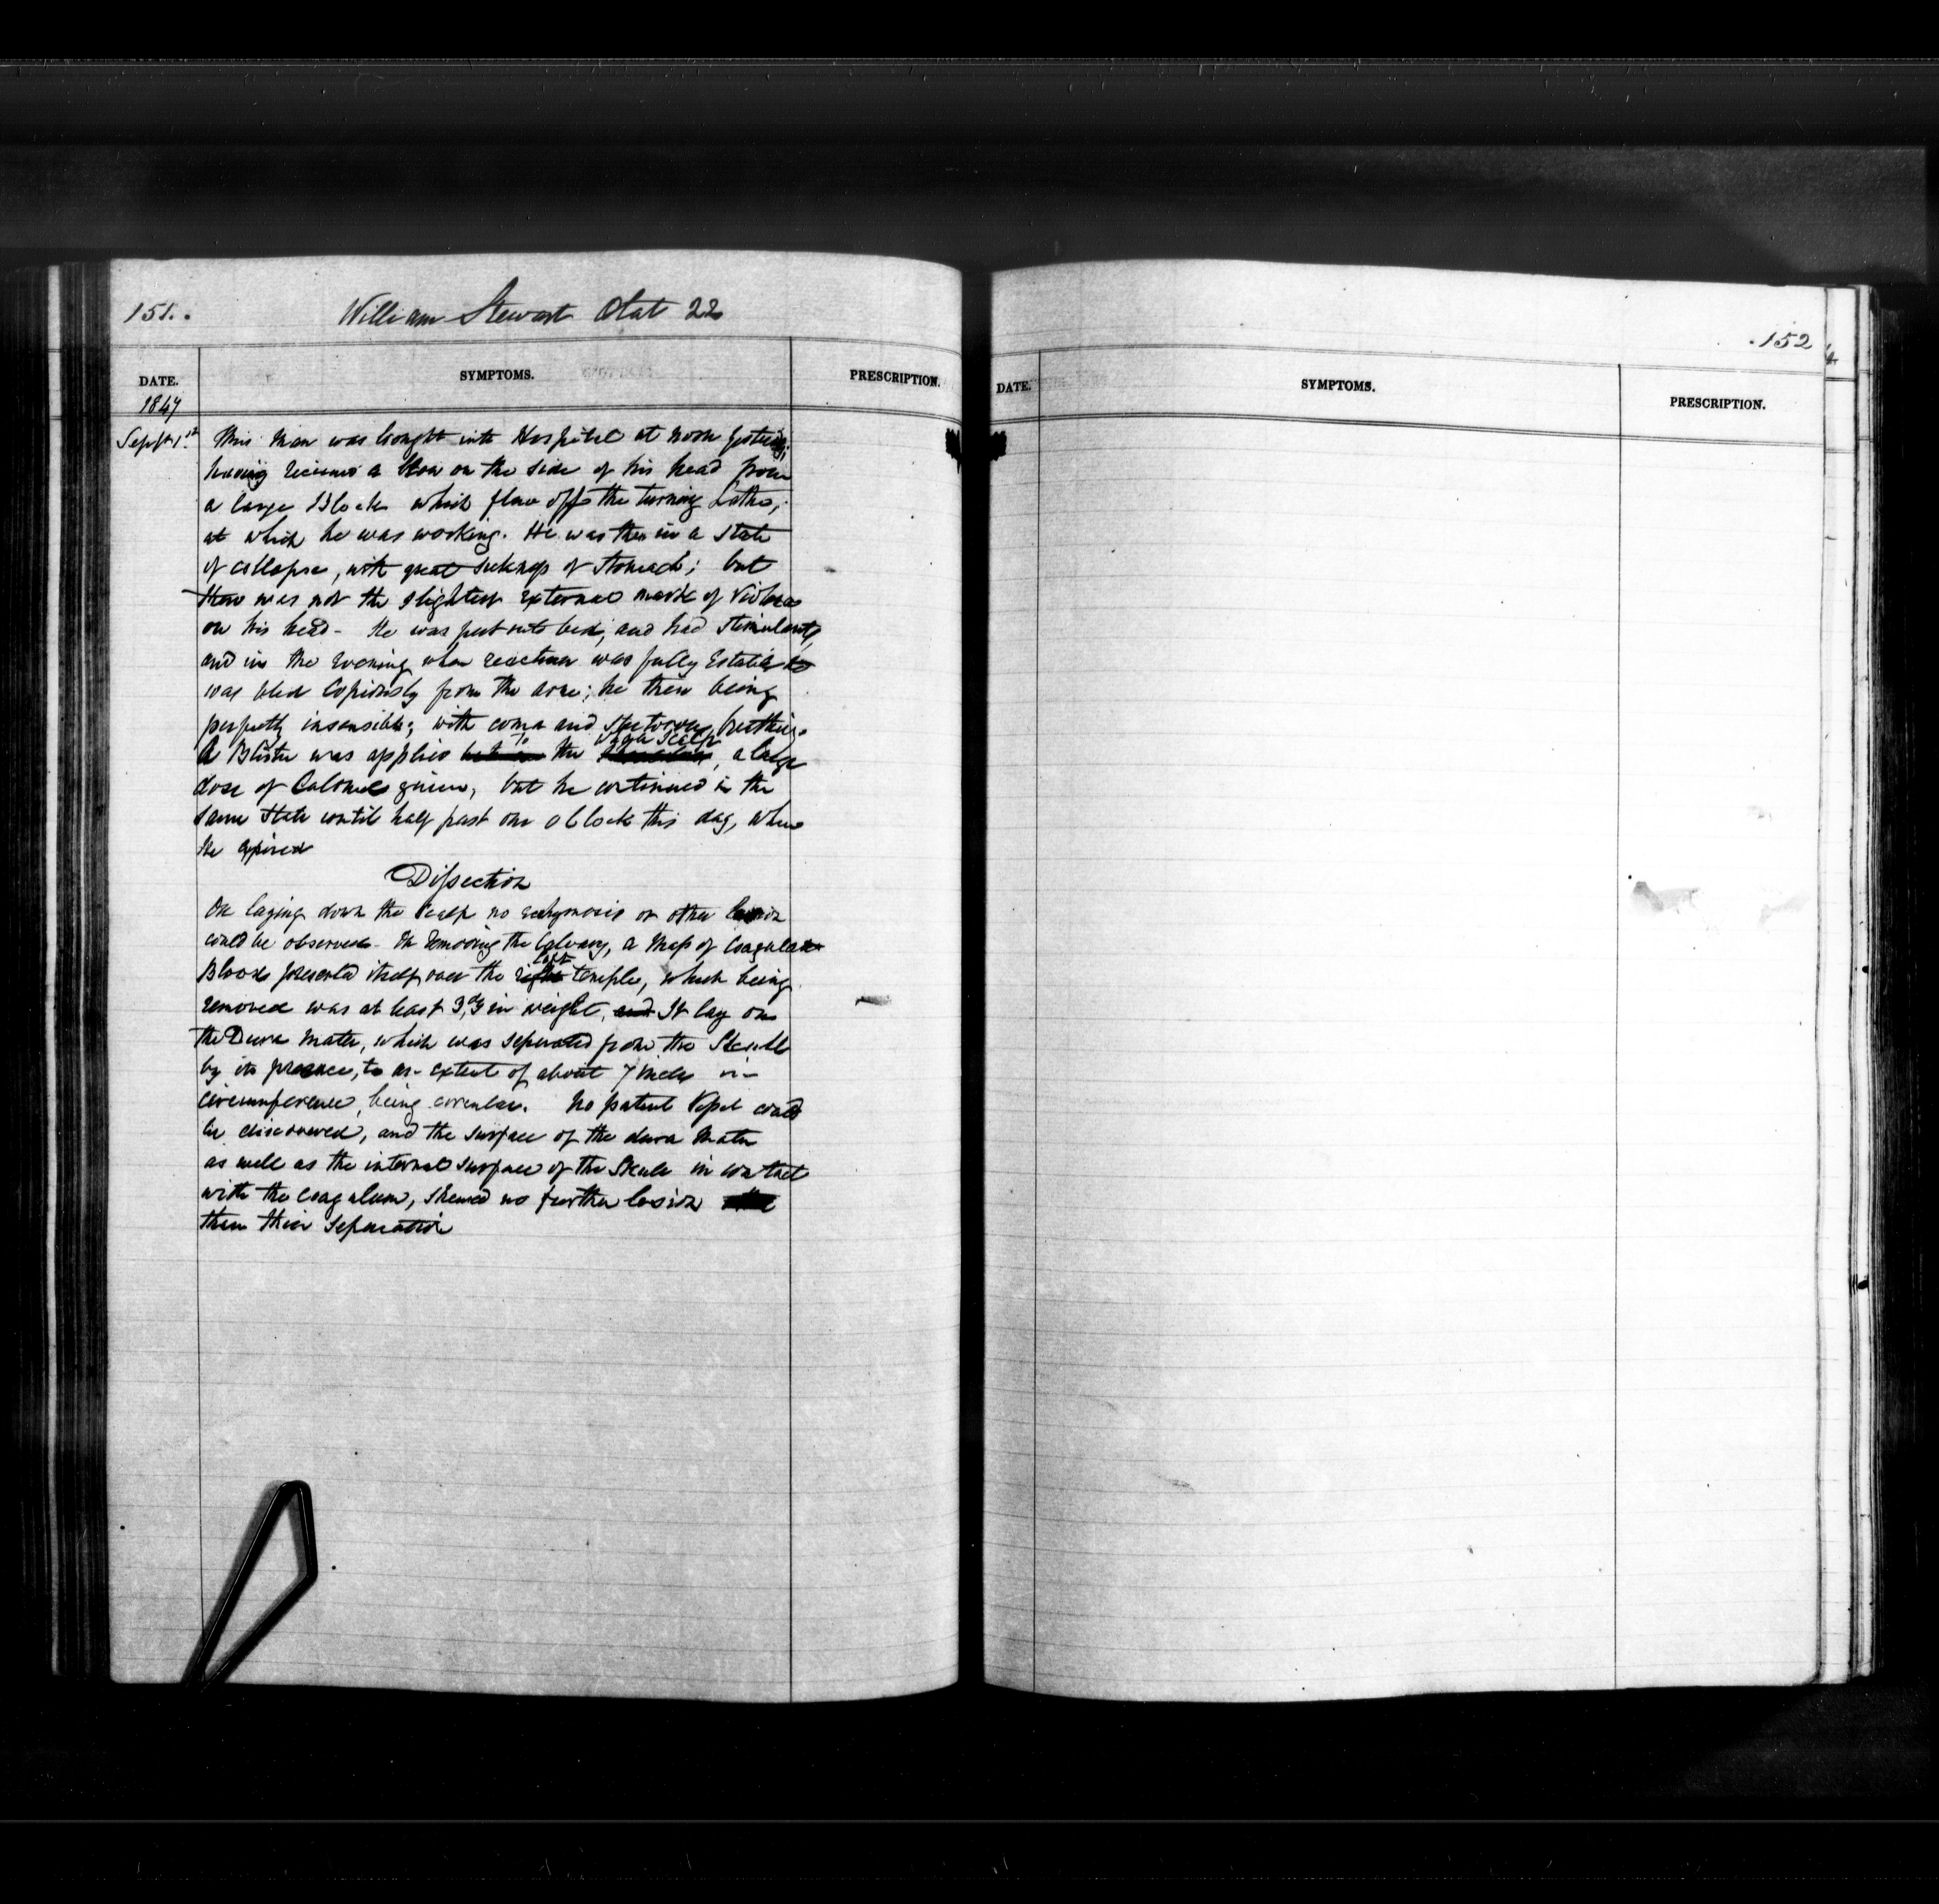 151.
William Stewart Ætat 22
DATE. SYMPTOMS. PRESCRIPTION.
1847
Sept 1st This man was bought into Hospital at noon yesterday;
having received a blow on the side of his head from
a large Block which flew off the turning Lathe,
at which he was working. He was then in a State
of collapse, with great sickness of stomach; but
there was not the slightest external mark of violence
on his head - He was put into bed, and had stimulants,
and in the evening when reaction was fully Establish
was bled Copiously from the arm; he then being
perfectly insensible; with coma and stertorous breathing.
A Blister was applied to the whole Scalp, a large
dose of Calomel given, but he continued in the
same State until half past one oClock this day, when
he expired
Dissection
On laying down the Scalp no ecchymosis or other lesion
could be observed - On removing the Calvary, a Mass of Coagulated
Blood presented itself over the left temple, which being
removed was at least in weight, and It lay on
the Dura Mater, which was seperated from the Skull
by its presence, to an extent of about 7 inches in
circumference, being circular. No patent Vessel could
be discovered, and the surface of the dura Mater
as well as the internal surface of the Skull in contact
with the coagulum, shewed no further lesion
than their Seperation
152
DATE. SYMPTOMS. PRESCRIPTION.